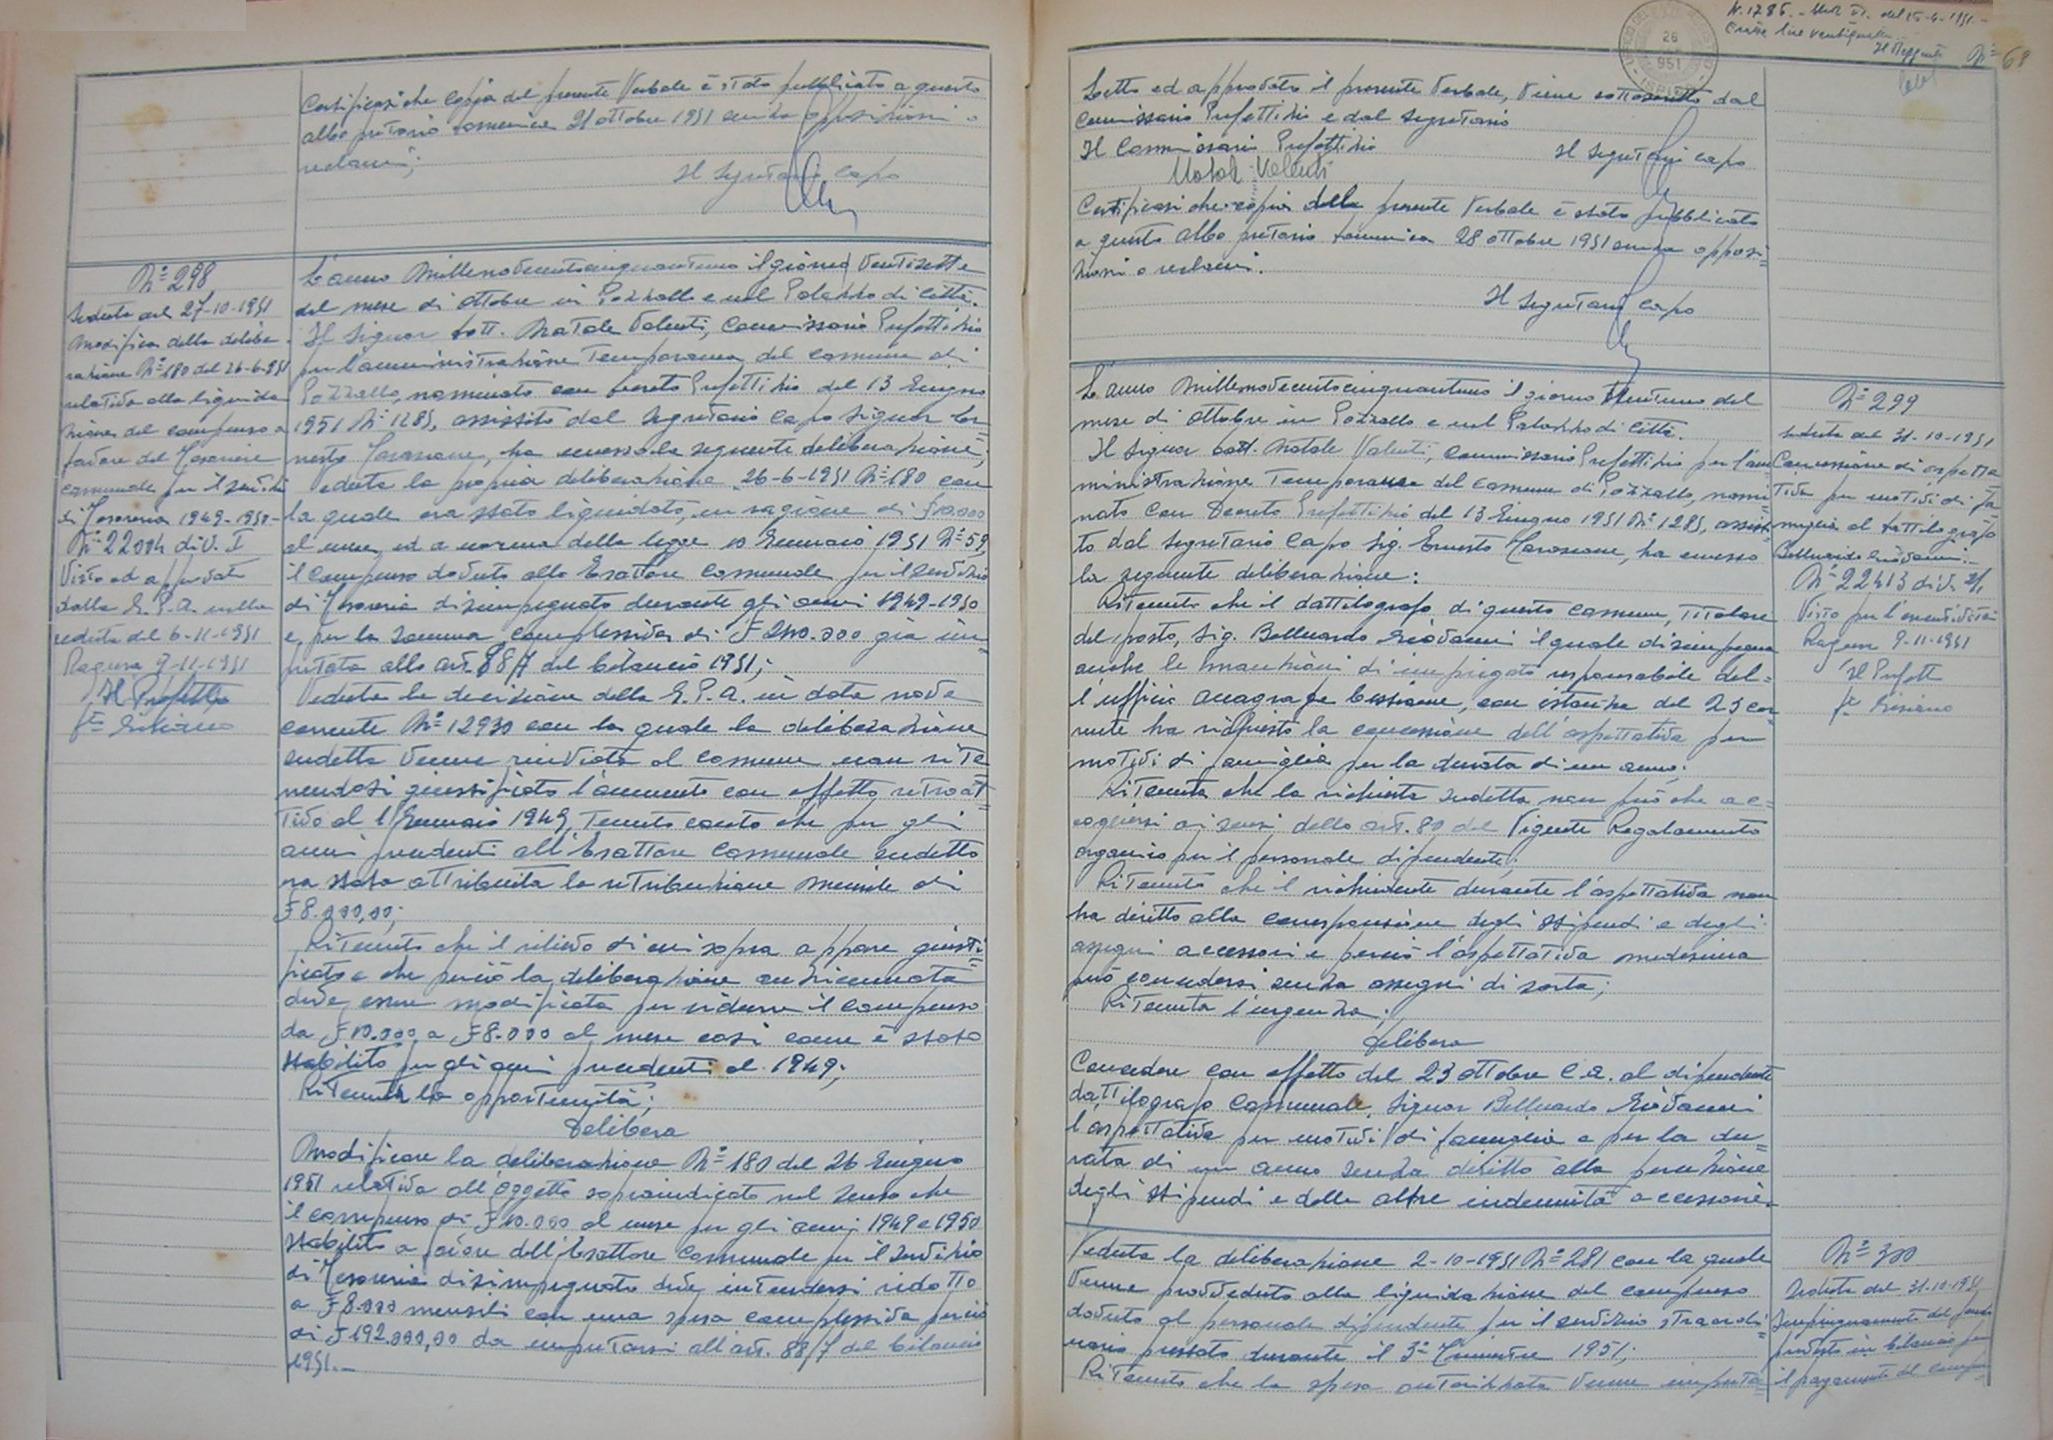 Certificasi che copia del presente Verbale è stato pubblicato a questo
albo pretorio domenica 21 ottobre 1951 senza opposizioni o
reclami;
Il Segretario Capo
N° 298
Seduta del 27-10-1951
Modifica della delibe-
razione N° 180 del 26-6-951
relativa alla liquida
zione del compenso a
favore del Tesoriere
comunale per il servizio
di Tesoreria 1949-1950-
N° 22004 div. I
Visto ed approvato
dalla G.P.A. nella
seduta del 6-11-1951
Ragusa 7-11-1951
Il Prefetto
L'anno Millenovecentocinquantuno il giorno Ventisette
del mese di ottobre in Pozzallo e nel Palazzo di Città.
Il Signor Dott. Natale Valenti, Commissario Prefettizio
per l'amministrazione Temporanea del Comune di
Pozzallo, nominato con Decreto Prefettizio del 13 Giugno
1951 N° 1285, assistito dal Segretario Capo Signor Er=
nesto , ha emesso la seguente deliberazione;
Veduta la propria deliberazione 26-6-1951 N° 180 con
la quale era stato liquidato, in ragione di £10.000
al mese, ed a norma della legge 10 Gennaio 1951 N° 59,
il compenso dovuto allo Esattore Comunale per il servizio
di Tesoreria disimpegnato durante gli anni 1949-1950
e, per la somma complessiva di £ 240.000 già im=
putata allo art. 88/7 del bilancio 1951;
Veduta la decisione della G.P.A. in data nove
corrente N° 12930 con la quale la deliberazione
sudetta venne rinviata al Comune non rite
nendosi giustificato l'aumento con effetto retroat=
tivo al 1° Gennaio 1949, tenuto conto che per gli
anni precedenti all'Esattore Comunale sudetto
era stata attribuita la retribuzione mensile di
£ 8.000,00;
Ritenuto che il rilievo di cui sopra appare giusti=
ficato e che perciò la deliberazione anzicennata
deve essere modificata per ridurre il compenso
da £ 10.000 a £ 8.000 al mese così come è stato
stabilito per gli anni precedenti al 1949;
Ritenuta la opportunità;
Delibera
Modificare la deliberazione N° 180 del 26 Giugno
1951 relativa all'oggetto sopraindicato nel senso che
il compenso di £ 10.000 al mese per gli anni 1949 e 1950
stabilito a favore dell'Esattore Comunale per il servizio
di Tesoreria disimpegnato deve intendersi ridotto
a £ 8.000 mensili con una spesa complessiva perciò
di £ 192.000,00 da imputarsi all'art. 88/7 del bilancio
1951.-
N. 1786.
del 15-4-1951.-
N° 68
26
951
Letto ed approvato il presente Verbale, viene sottoscritto dal
Commissario Prefettizio e dal Segretario
Il Commissario Prefettizio
Il Segretario Capo
Natale Valenti
Certificasi che copia della presente Verbale è stato pubblicato
a questo albo pretorio domenica 28 ottobre 1951 senza opposi=
zioni o reclami.
Il Segretario Capo
L'anno Millenovecentocinquantuno il giorno trentuno del
mese di ottobre in Pozzallo e nel Palazzo di Città.
Il Signor Dott. Natale Valenti, Commissario Prefettizio per l'am
ministrazione Temporanea del Comune di Pozzallo, nomi
nato con Decreto Prefettizio del 13 Giugno 1951 N° 1285, assisti
to dal Segretario Capo Sig. Ernesto , ha emesso
la seguente deliberazione:
Ritenuto che il dattilografo di questo Comune, titolare
del posto, Sig. Belluardo Giovanni il quale disimpegna
anche le mansioni di impiegato responsabile del=
l'ufficio anagrafe bestiame, con istanza del 23 cor=
rente ha richiesto la concessione dell'aspettativa per
motivi di famiglia per la durata di un anno;
Ritenuta che la richiesta sudetta non può che ac=
cogliersi ai sensi dello art. 80 del Vigente Regolamento
organico per il personale dipendente;
Ritenuto che il richiedente durante l'aspettativa non
ha diritto alla corresponsione degli stipendi e degli
assegni accessori e perciò l'aspettativa medesima
può concedersi senza assegni di sorta;
Ritenuta l'urgenza;
Delibera
Concedere con effetto dal 23 ottobre c.a. al dipendente
dattilografo Comunale, Signor Belluardo Giovanni
l'aspettativa per motivi di famiglia e per la du=
rata di un anno senza diritto alla percezione
degli stipendi e delle altre indennità accessorie.
N° 299
Seduta del 31-10-1951
Concessione di aspetta
tiva per motivi di fa
miglia al dattilografo
Belluardo Giovanni.-
N° 22413 div.
Visto per l'esecutività
Ragusa 9-11-1951
Il Prefetto
Veduta la deliberazione 2-10-1951 N° 281 con la quale
venne provveduto alla liquidazione del compenso
dovuto al personale dipendente per il servizio straordi=
nario prestato durante il 3° Trimestre 1951;
Ritenuto che la spesa autorizzata venne imputa=
N° 300
Seduta del 31-10-1951
Impinguamento del fondo
previsto in bilancio per
il pagamento del compen=